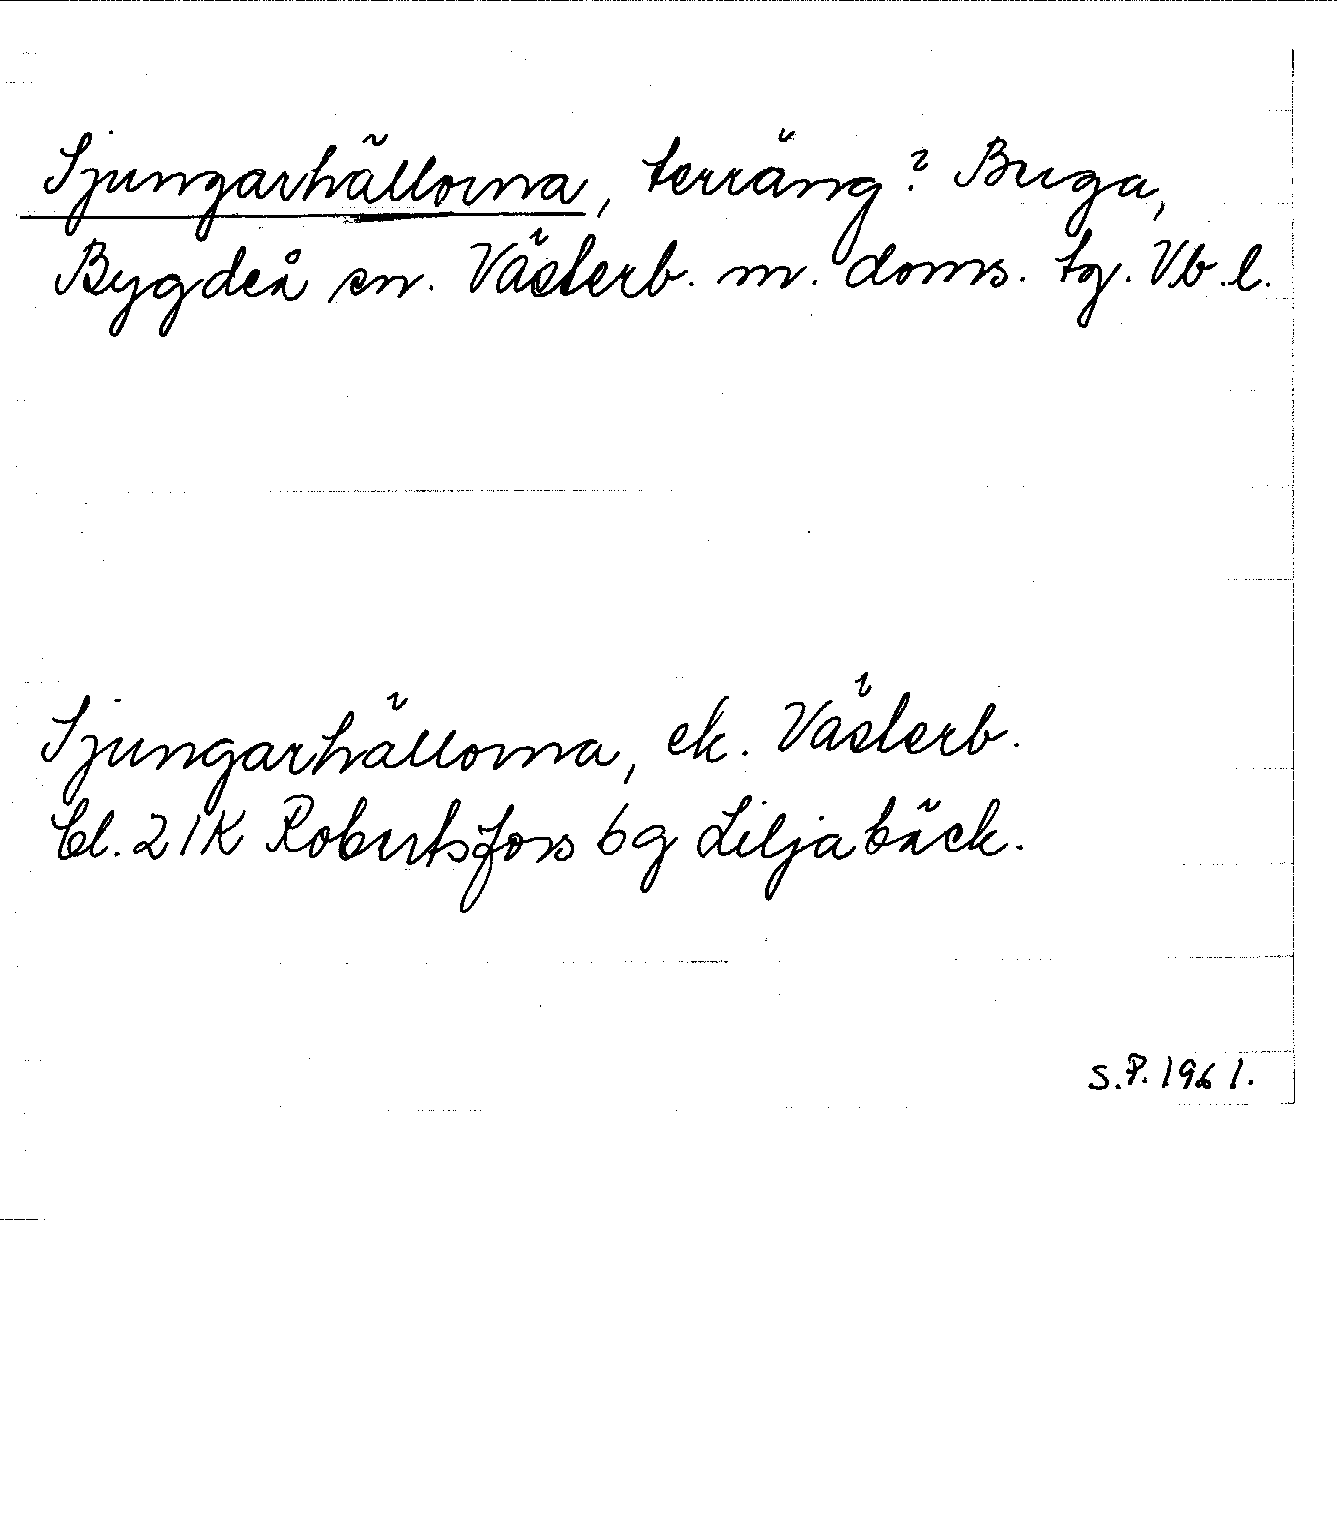 Sjungarhällorna, terräng? Buga,
Bygdeå sn. Västerb. m. doms. tg. Vb. l.
Sjungarhällorna, ek. Västerb.
bl. 21K Robertsfors 6g Liljabäck.
S.P. 1961.